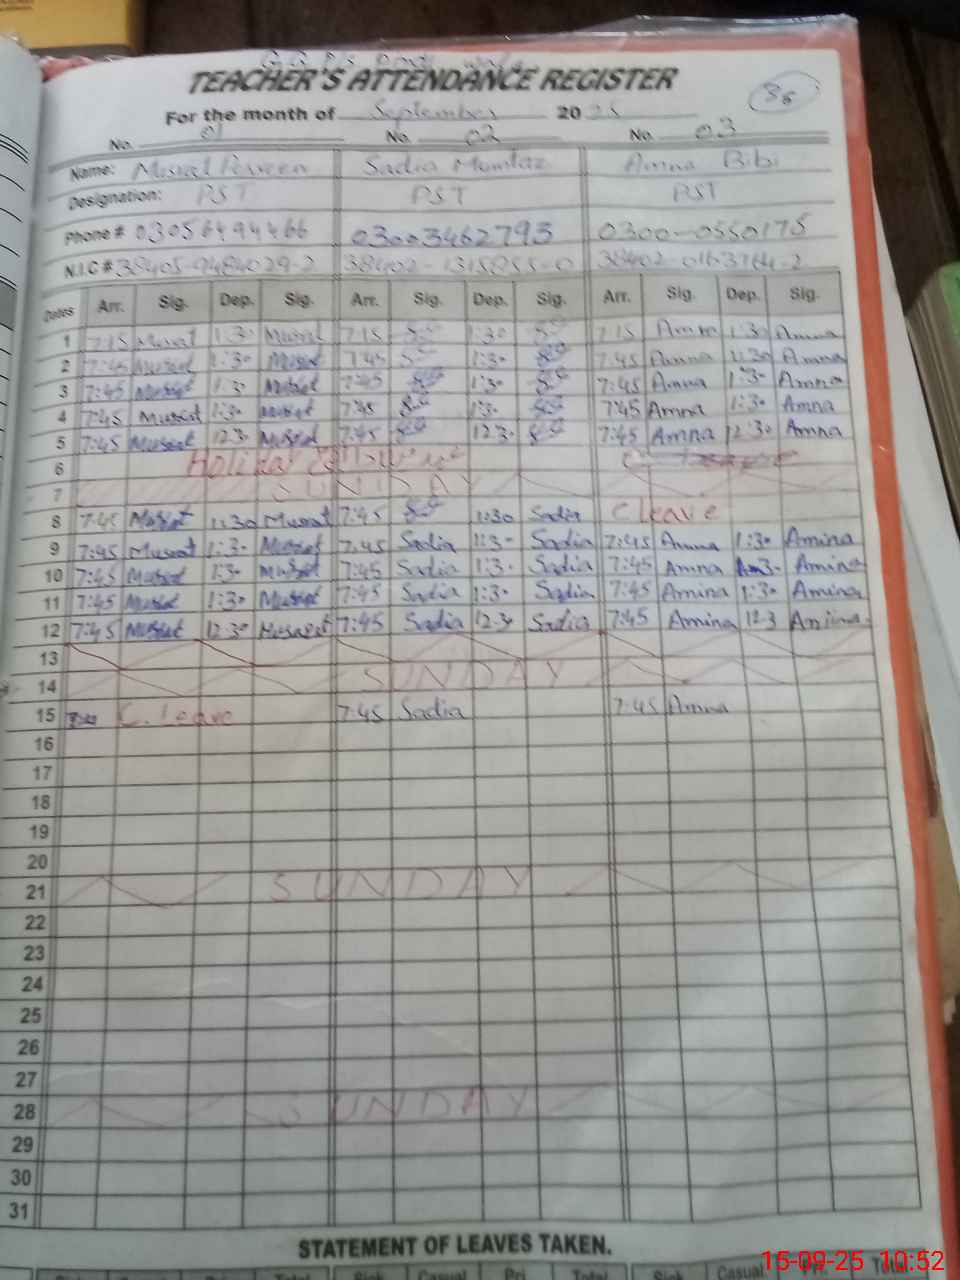 TEACHER'S ATTENDANCE REGISTER
36
For the month of September 2025
No. 01 No. 02 No. 03
Name: Musrat Perveen Sadia Mumtaz Amna Bibi
Designation: PST PST PST
Phone # 03056494466 03003462793 0300-0550175
N.I.C # 38405-9484029-2 38402-1315855-0 38402-0163764-2
Dates Arr. Sig. Dep. Sig. Arr. Sig. Dep. Sig. Arr. Sig. Dep. Sig.
1 7:15 Musrat 1:30 Musrat 7:15 1:30 7:15 Amna 1:30 Amna
2 7:45 Musrat 1:30 Musrat 7:45 1:30 7:45 Amna 1:30 Amna
3 7:45 Musrat 1:30 Musrat 7:45 1:30 7:45 Amna 1:30 Amna
4 7:45 Musrat 1:30 Musrat 7:45 1:30 7:45 Amna 1:30 Amna
5 7:45 Musrat 12:30 Musrat 7:45 12:30 7:45 Amna 12:30 Amna
6 Holiday
7 SUNDAY
8 7:45 Musrat 1:30 Musrat 7:45 1:30 Sadia C leave
9 7:45 Musrat 1:30 Musrat 7:45 Sadia 1:30 Sadia 7:45 Amna 1:30 Amina
10 7:45 Musrat 1:30 Musrat 7:45 Sadia 1:30 Sadia 7:45 Amna 1:30 Amina
11 7:45 Musrat 1:30 Musrat 7:45 Sadia 1:30 Sadia 7:45 Amina 1:30 Amina
12 7:45 Musrat 12:30 Musarat 7:45 Sadia 12:30 Sadia 7:45 Amina 12:3 Amiina
13
14 SUNDAY
15 C. leave 7:45 Sadia 7:45 Amna
16
17
18
19
20
21 SUNDAY
22
23
24
25
26
27
28 SUNDAY
29
30
31
STATEMENT OF LEAVES TAKEN.
Total Sick Casual Pri Total Sick Casual Pri Total
15-09-25 10:52